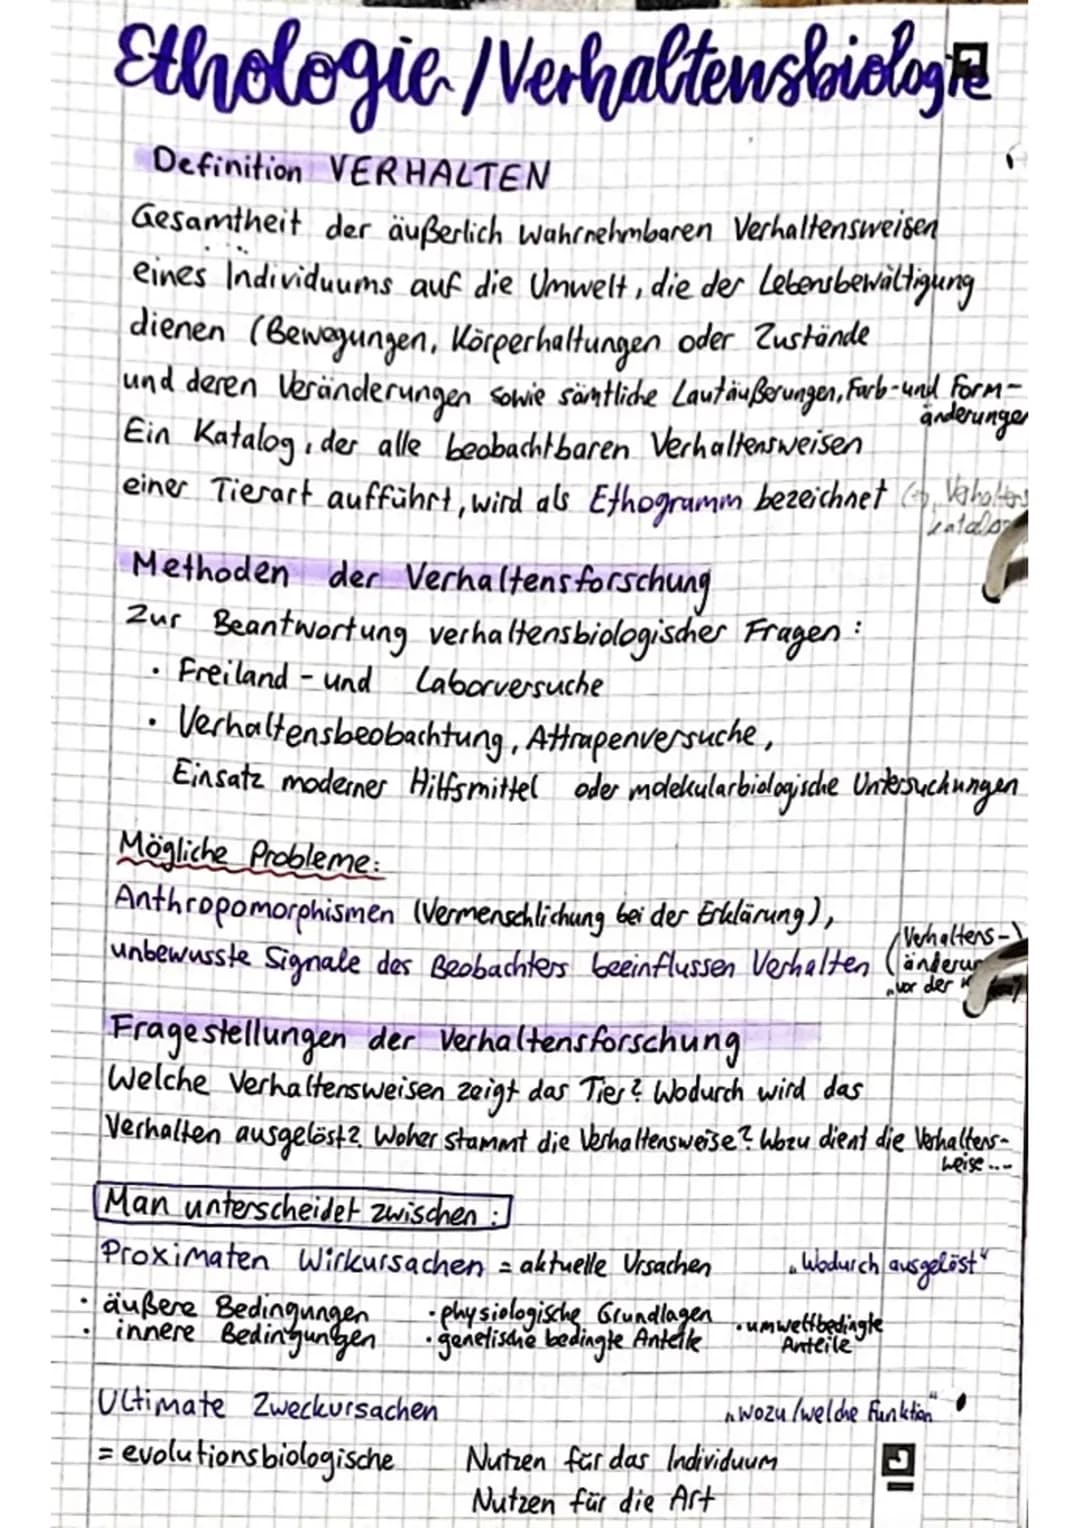 Ethologie / Verhaltensbiologie
Definition VERHALTEN
Gesamtheit der äußerlich wahrnehmbaren Verhaltensweisen
eines Individuums auf die Umwelt, die der Lebensbewältigung
dienen (Bewegungen, Körperhaltungen oder Zustände
und deren Veränderungen sowie sämtliche Lautäußerungen, Farb- und Form-
änderungen
Ein Katalog, der alle beobachtbaren Verhaltensweisen
einer Tierart aufführt, wird als Ethogramm bezeichnet
Methoden der Verhaltensforschung
Zur Beantwortung verhaltensbiologischer Fragen:
• Freiland - und Laborversuche
• Verhaltensbeobachtung, Attrapenversuche,
Einsatz moderner Hilfsmittel oder molekularbiologische Untersuchungen
Mögliche Probleme:
Anthropomorphismen (Vermenschlichung bei der Erklärung),
unbewusste Signale des Beobachters beeinflussen Verhalten
(Verhaltens-
"vor der
Fragestellungen der Verhaltensforschung
Welche Verhaltensweisen zeigt das Tier? Wodurch wird das
Verhalten ausgelöst? Woher stammt die Verhaltensweise? Wozu dient die Verhaltens-
weise ...
Man unterscheidet zwischen:
Proximaten Wirkursachen = aktuelle Ursachen „Wodurch ausgelöst"
• äußere Bedingungen • physiologische Grundlagen • umweltbedingte
• innere Bedingungen • genetische bedingte Anteile Anteile
Ultimate Zweckursachen „wozu / welche Funktion"
= evolutionsbiologische Nutzen für das Individuum
Nutzen für die Art